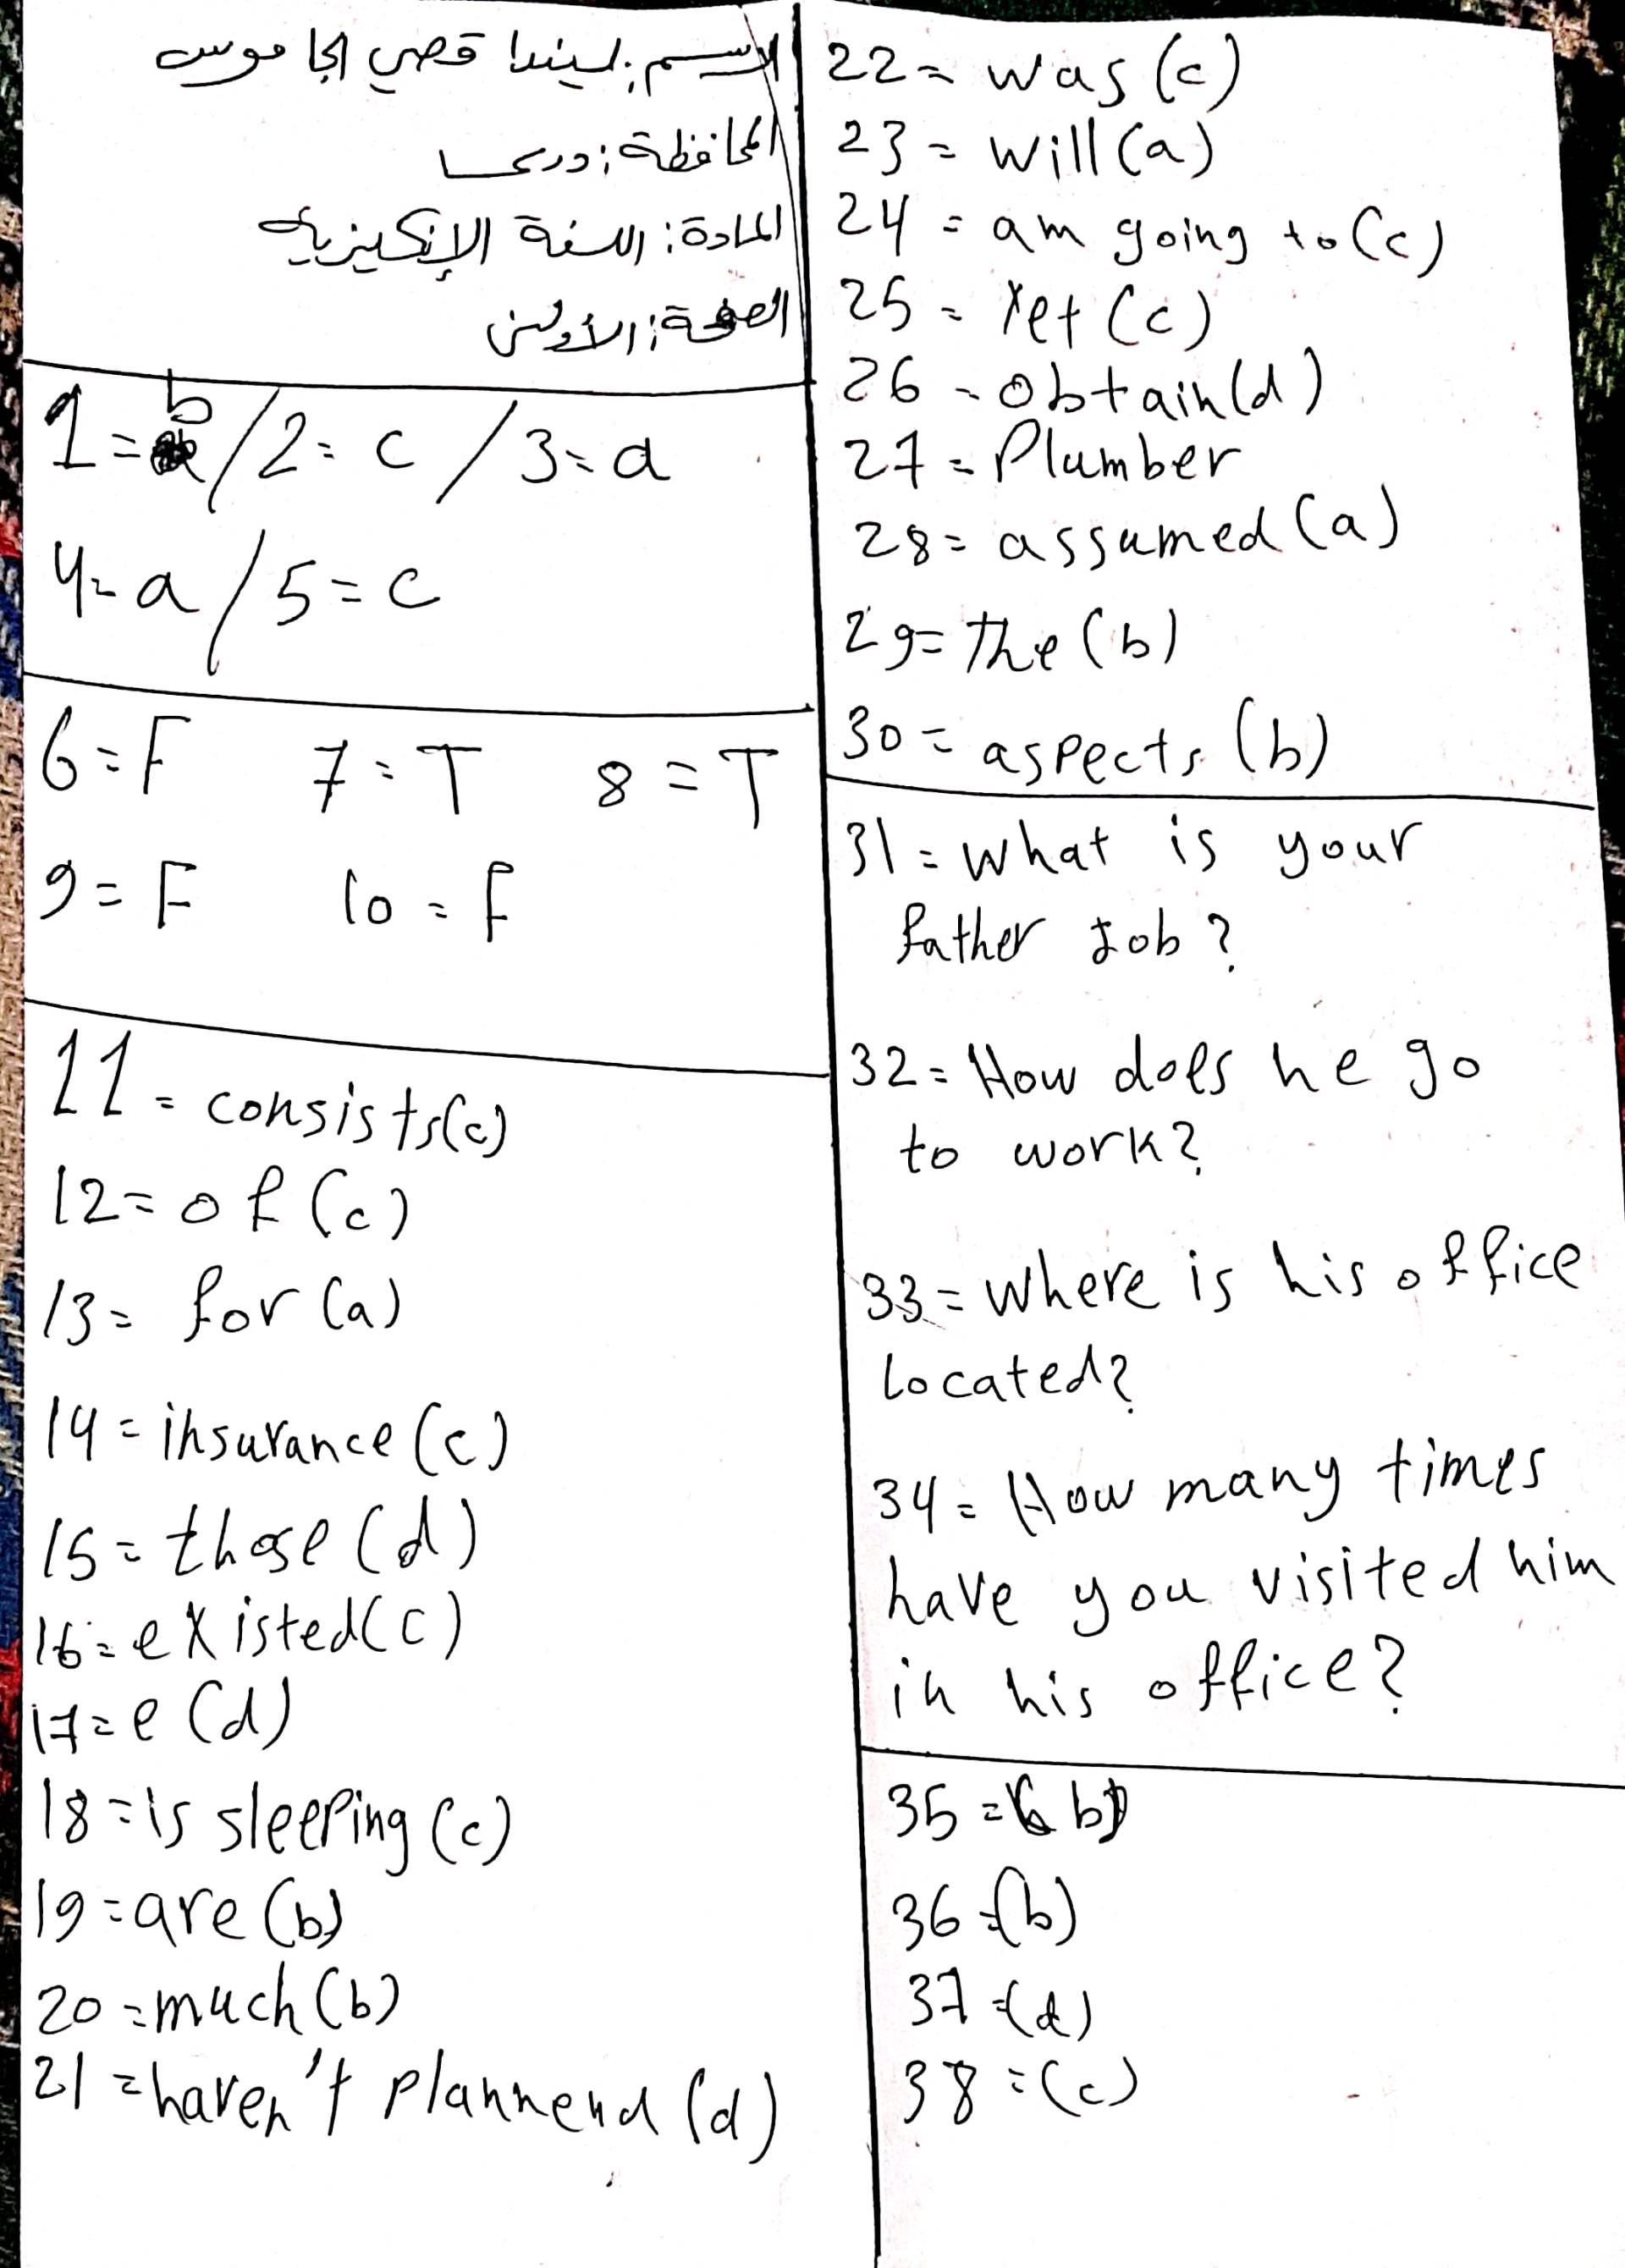 الاسم: ليندا قصي الجاموس
المحافظة: درعا
المادة: اللغة الإنكليزية
الصفحة: الأولى
1 = b / 2 = c / 3 = a
4 = a / 5 = c
6 = F 7 = T 8 = T
9 = F 10 = F
11 = consists (c)
12 = of (c)
13 = for (a)
14 = insurance (c)
15 = those (d)
16 = existed (c)
17 = e (d)
18 = is sleeping (c)
19 = are (b)
20 = much (b)
21 = haven't plannend (d)
22 = was (c)
23 = will (a)
24 = am going to (c)
25 = Yet (c)
26 = obtain (d)
27 = Plumber
28 = assumed (a)
29 = The (b)
30 = aspects (b)
31 = what is your
father Job?
32 = How does he go
to work?
33 = where is his office
located?
34 = How many times
have you visited him
in his office?
35 = (b)
36 = (b)
37 = (d)
38 = (c)